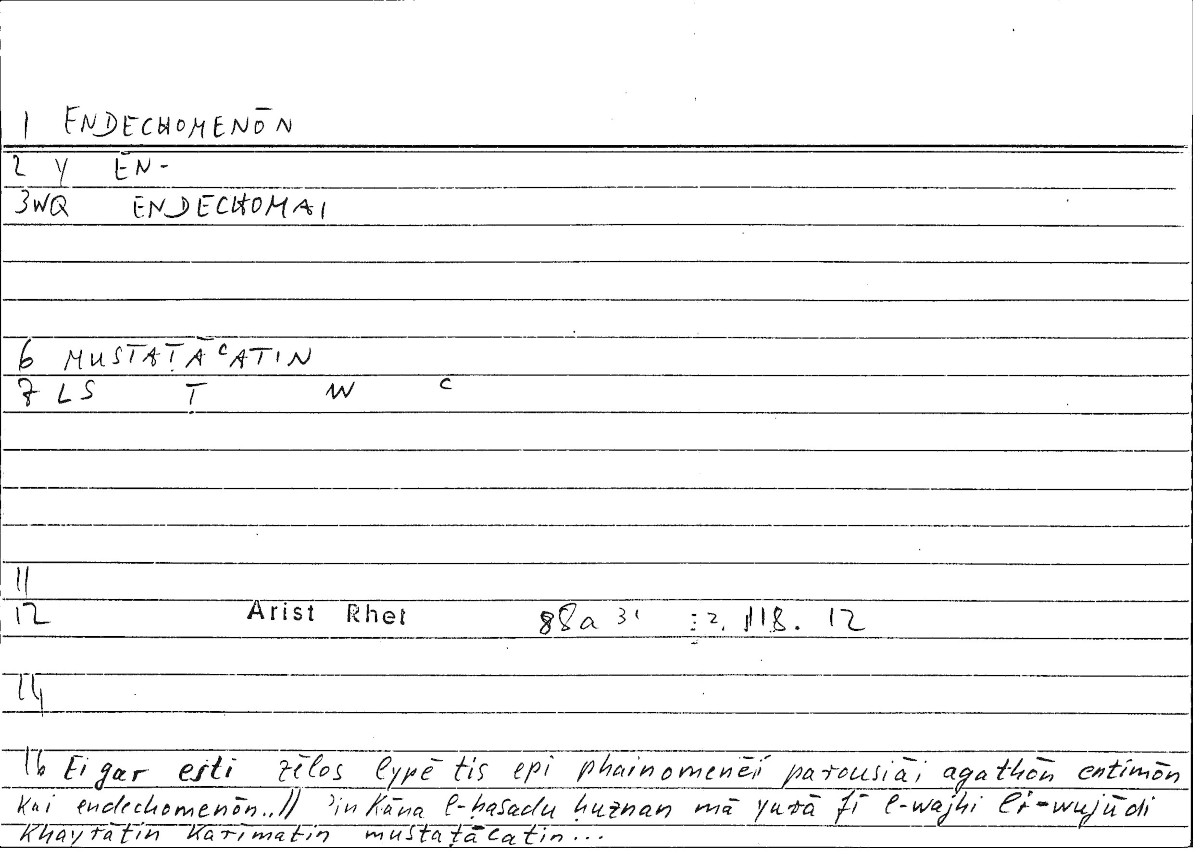 1 ENDECHOMENŌN
2 Y EN-
3WQ ENDECHOMAI
6 MUSTAṬĀᶜATIN
7 LS T W ᶜ
11
12 Arist Rhet 88a 31 :2, 118. 12
14
16 Ei gar esti zēlos lypē tis epi phainomenēi parousiāi agathōn entimōn
kai endechomenōn..// ʾin kāna l-ḥasadu ḥuznan mā yurā fī l-wajhi li-wujūdi
khayrātin karīmatin mustaṭāᶜatin...